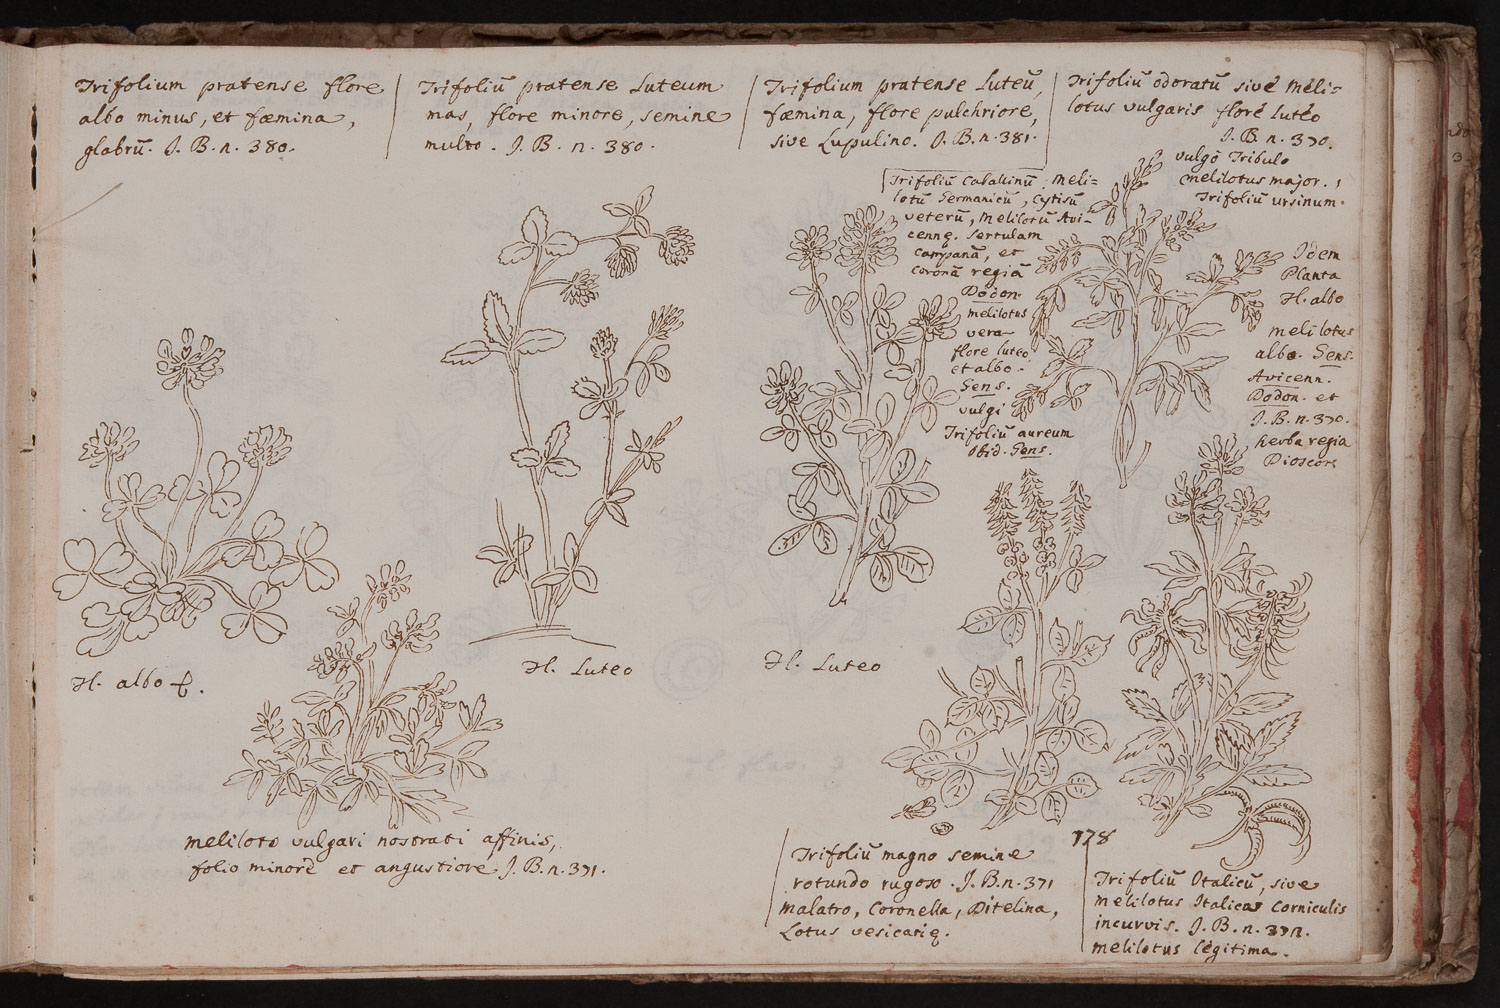 Trifolium pratense flore
albo minus, et fœmina,
glabrū. J. B. n. 380.
Trifoliū pratense Luteum
mas, flore minore, semine
multo. J. B. n. 380.
Trifolium pratense Luteū,
fœmina, flore pulchriore,
sive Lupulino. J. B. n. 381.
Trifoliū odoratū sive Meli-
lotus vulgaris flore luteo
J. B. n. 370.
vulgo Tribulo
melilotus major.
Trifoliū ursinum.
Trifoliū Caballinū, Meli-
lotū Germanicū, Cytisū
veterū, Melilotū Avi-
cennę. Sertulam
campanā, et
coronā regiā
Dodon.
melilotus
vera
flore luteo
et albo.
Gens.
vulgi
Trifoliū aureum
Gens.
Idem
Planta
fl. albo
melilotus
alba. Gens.
Avicenn.
Dodon. et
J. B. n. 370.
herba regia
Dioscor.
fl. albo
fl. Luteo
fl. Luteo
meliloto vulgari nostrati affinis,
folio minore et angustiore J. B. n. 371.
178
Trifoliū magno semine
rotundo rugoso. J. B. n. 371
Malatro, Coronella, Ditelina,
Lotus vesicarię.
Trifoliū Italicū, sive
melilotus Italica Corniculis
incurvis. J. B. n. 371.
melilotus legitima.